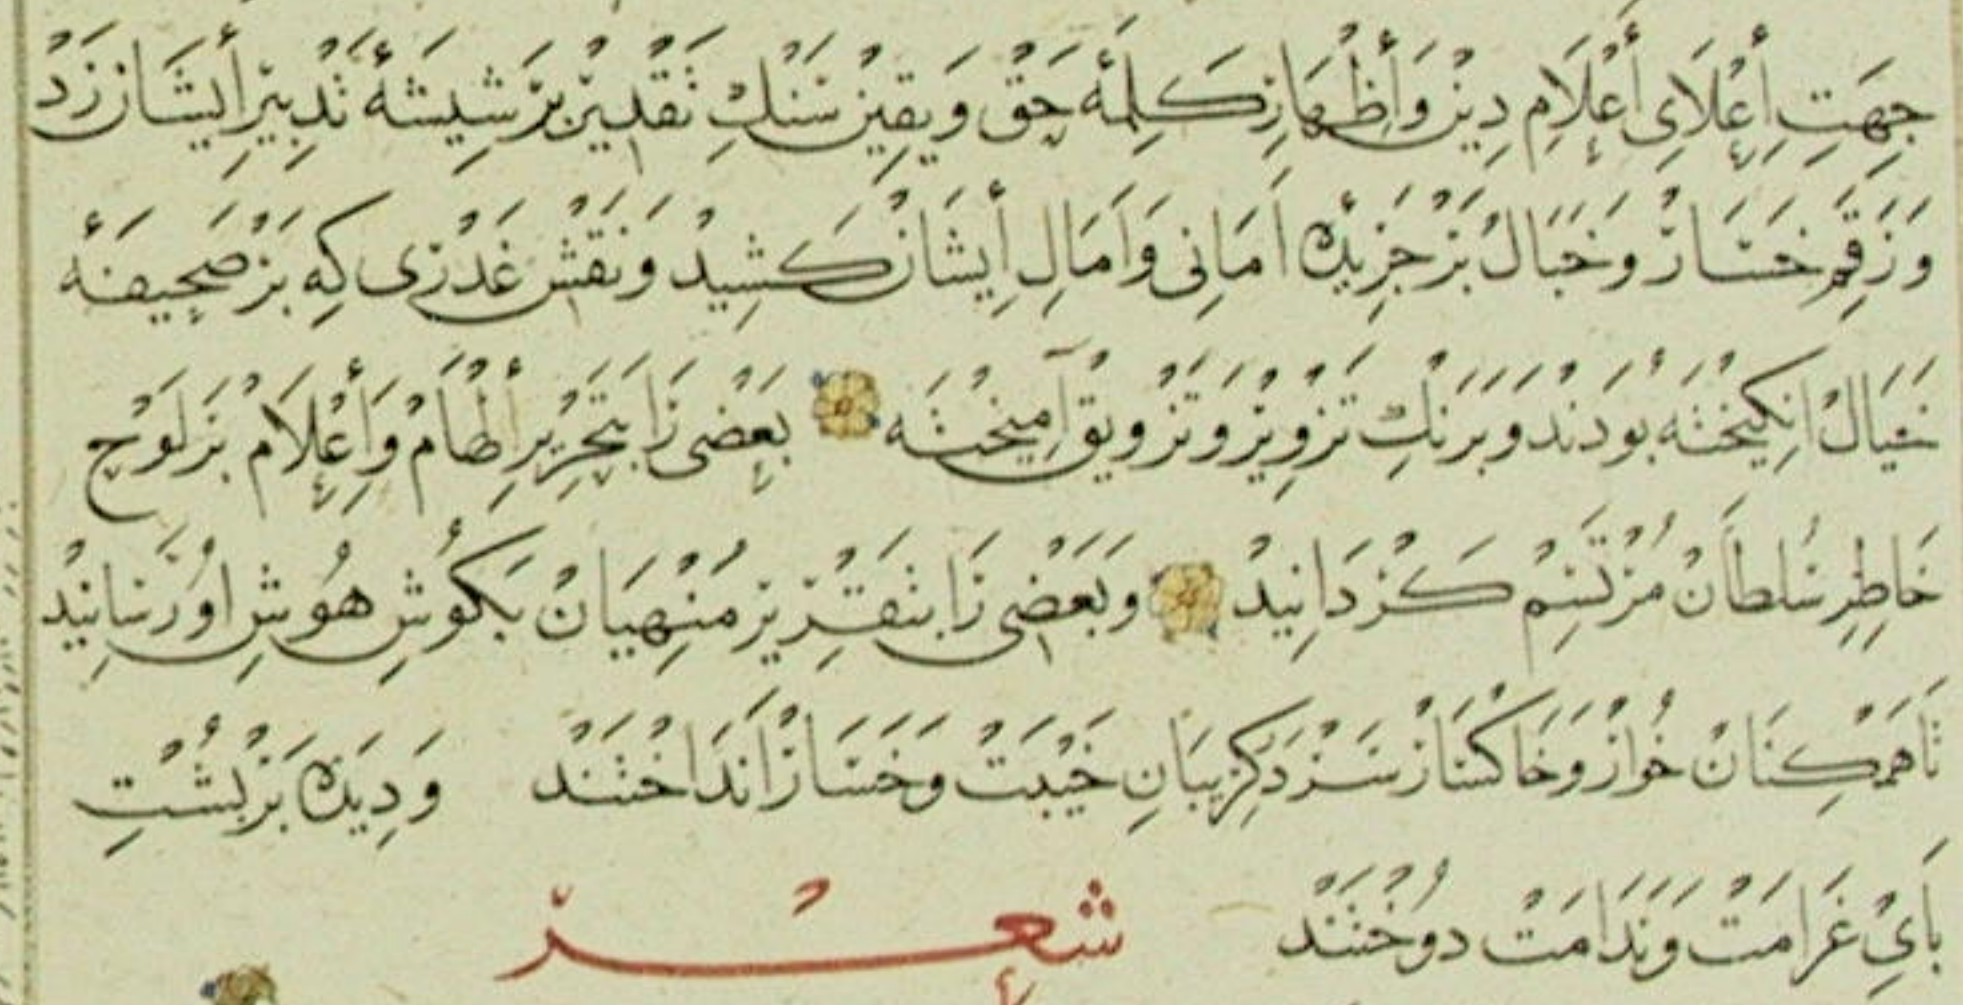 جِهَتِ إِعْلَاىِ أَعْلَامِ دِينْ وَاِظْهَارِ كَلِمَهٔ حَقْ وَيَقِينْ سَنْكِ تَقْدِيرْ بَرْ شِيشَهٔ تَدْبِيرِ اِيشَانْ زَدْ
وَرَقَمِ خَسَارْ وَخَبَالْ بَرْ جَرِيدَهٔ اَمَانِى وَآمَالِ اِيشَانْ كَشِيدْ وَنَقْشِ غَدْرِى كِه بَرْ صَحِيفَهٔ
خَيَالْ انكِيخْتَه بُودَنْد وبَرَنْكِ تَزْوِيرْ وتَزْوِيقْ آمِيخْتَه بَعْضِى رَا بِتَحْرِيرِ
خَاطِرِ سُلطَانْ مُرْتَسِمْ كَرْدَانِيدْ وبَعْضِى رَا بتَقْرِيرِ مُنْهِيَانْ بَكُوشِ هُوشِ اُو رَسَانِيدْ
تَا هَمِكِنَانْ خوَارْ وخَاكْسَارْ سَرْ دَر كِرِيبَانِ خَيْبَتْ وخَسَارْ اَنْدَاخْتَنْد وَدِيَدَه بَرْ بُشْتِ
بَاىِ غَرَامَتْ وَنَدَامَتْ دوُخْتَنْد
شعر